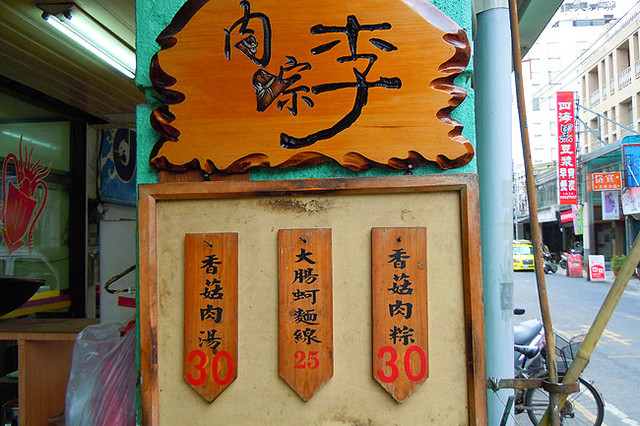 李
肉粽
香菇肉粽
30
大腸蚵麵線
25
香菇肉湯
30
四海豆漿
早餐